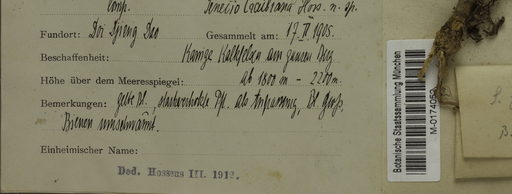 Comp. Senecio Craibiana Hoss. n. sp.
Fundort: Doi Djieng Dao Gesammelt am: 17. II 1905.
Beschaffenheit: Kantige Kalkfelsen am ganzen Berg
Höhe über dem Meeresspiegel: ab 1800 m - 2200 m.
Bemerkungen: gelbe Bl. starkverholzte Pfl. als Bl. groß,
Bienen umschwärmt.
Einheimischer Name:
Ded. Hosseus III. 1912.
Botanische Staatssammlung München
M-0174052